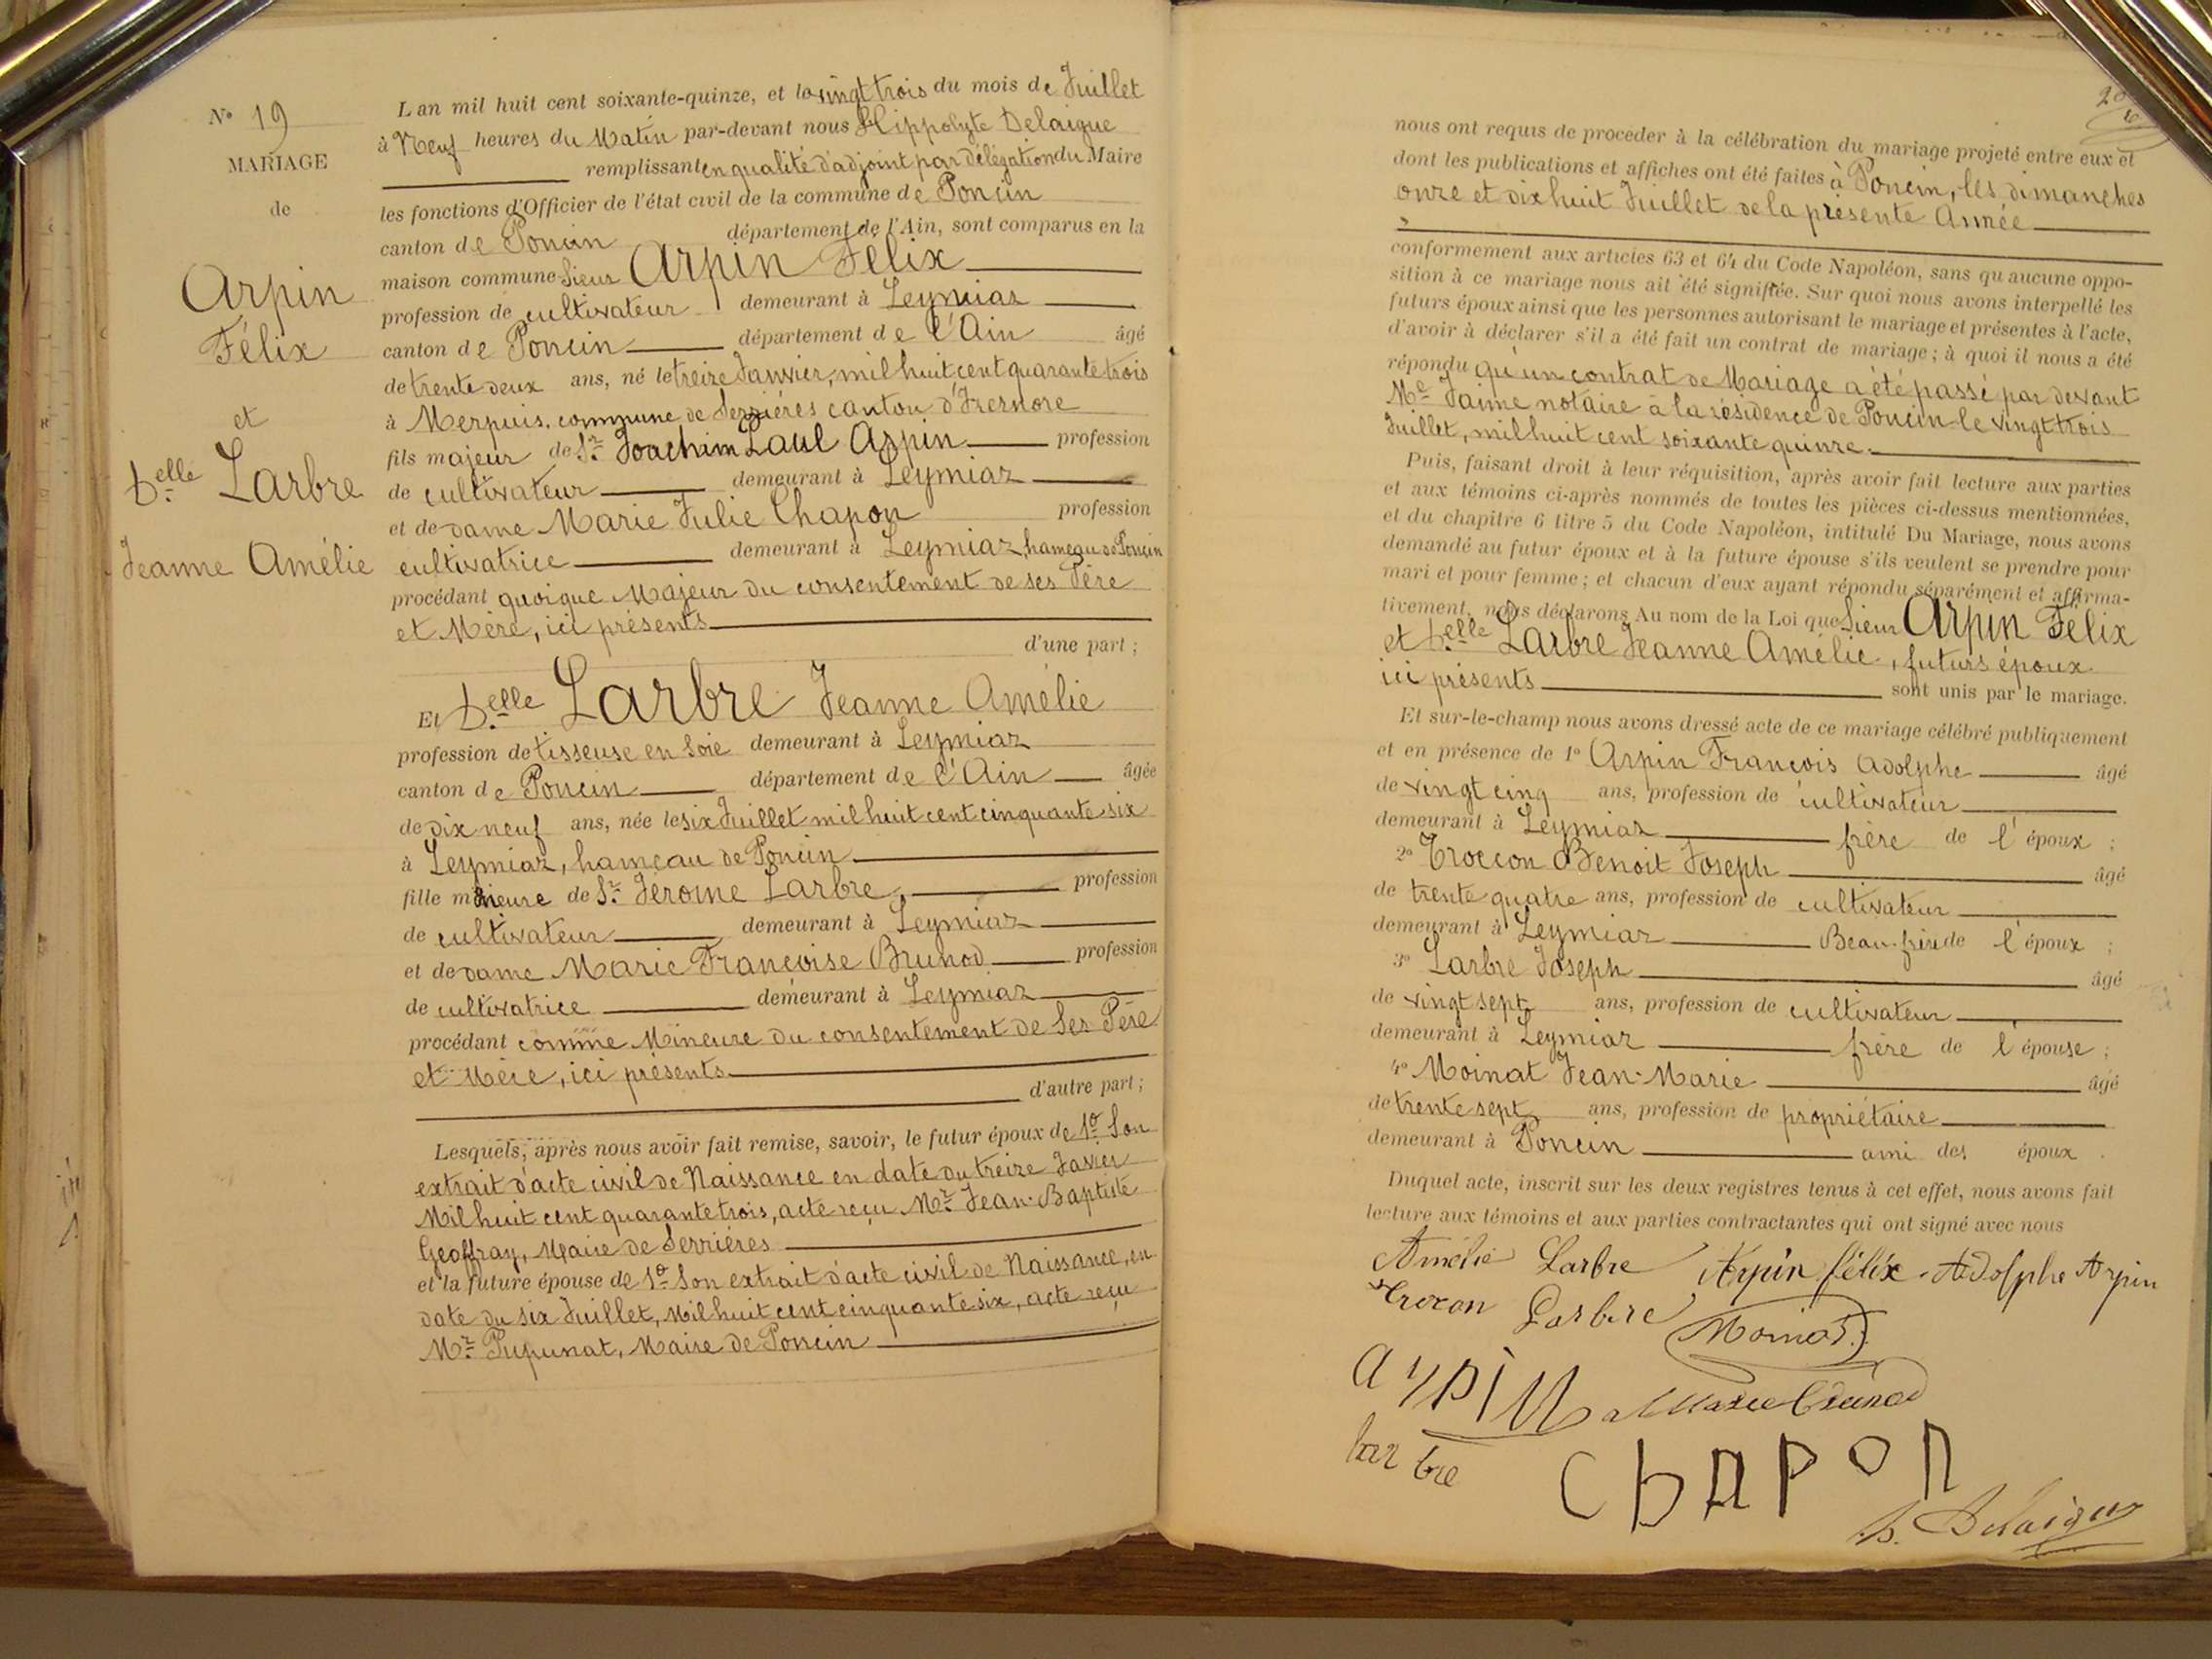 N° 19
MARIAGE
de
Arpin
Félix
et
Delle Larbre
Jeanne Amélie
L'an mil huit cent soixante-quinze, et le vingt trois du mois de Juillet
à Neuf heures du Matin par-devant nous Hippolyte Delaigue
remplissant en qualité d'adjoint par délégation du Maire
les fonctions d'Officier de l'état civil de la commune de Poncin
canton de Poncin département de l'Ain, sont comparus en la
maison commune Sieur Arpin Félix
profession de cultivateur demeurant à Leymiaz
canton de Poncin département de l'Ain âgé
de trente deux ans, né le treize Janvier, mil huit cent quarante trois
à Merpuis, commune de Serrières canton d'Izernore
fils majeur de Sr. Joachim Paul Arpin profession
de cultivateur demeurant à Leymiaz
et de dame Marie Julie Chapon profession
cultivatrice demeurant à Leymiaz, hameau de Poncin
procédant quoique Majeur du consentement de ses Père
et Mère, ici présents
d'une part ;
Et Delle Larbre Jeanne Amélie
profession de tisseuse en soie demeurant à Leymiaz
canton de Poncin département de l'Ain âgée
de dix neuf ans, née le six Juillet mil huit cent cinquante six
à Leymiaz, hameau de Poncin
fille mineure de Sr. Jérome Larbre, profession
de cultivateur demeurant à Leymiaz
et de dame Marie Françoise Brunod profession
de cultivatrice demeurant à Leymiaz
procédant comme Mineure du consentement de Ses Père
et Mère, ici présents
d'autre part ;
Lesquels, après nous avoir fait remise, savoir, le futur époux de 1° Son
extrait d'acte civil de Naissance en date du treize Javier
Mil huit cent quarante trois, acte reçu Mr. Jean-Baptiste
Geoffray, Maire de Serrières
et la future épouse de 1° Son extrait d'acte civil de Naissance, en
date du six Juillet, Mil huit cent cinquante six, acte reçu
Mr. Pupunat, Maire de Poncin
nous ont requis de procéder à la célébration du mariage projeté entre eux et
dont les publications et affiches ont été faites à Poncin, les dimanches
onze et dix huit Juillet de la présente Année
conformément aux articles 63 et 64 du Code Napoléon, sans qu'aucune oppo-
sition à ce mariage nous ait été signifiée. Sur quoi nous avons interpellé les
futurs époux ainsi que les personnes autorisant le mariage et présentes à l'acte,
d'avoir à déclarer s'il a été fait un contrat de mariage ; à quoi il nous a été
répondu qu'un contrat de Mariage a été passé par devant
Me Jaime notaire à la résidence de Poncin le vingt trois
Juillet, mil huit cent soixante quinze.
Puis, faisant droit à leur réquisition, après avoir fait lecture aux parties
et aux témoins ci-après nommés de toutes les pièces ci-dessus mentionnées,
et du chapitre 6 titre 5 du Code Napoléon, intitulé Du Mariage, nous avons
demandé au futur époux et à la future épouse s'ils veulent se prendre pour
mari et pour femme ; et chacun d'eux ayant répondu séparément et affirma-
tivement, nous déclarons Au nom de la Loi que Sieur Arpin Félix
et Delle Larbre Jeanne Amélie, futurs époux
ici présents sont unis par le mariage.
Et sur-le-champ nous avons dressé acte de ce mariage célébré publiquement
et en présence de 1° Arpin François Adolphe âgé
de vingt cinq ans, profession de cultivateur
demeurant à Leymiaz frère de l'époux ;
2° Troccon Benoit Joseph âgé
de trente quatre ans, profession de cultivateur
demeurant à Leymiaz Beau-frère de l'époux ;
3° Larbre Joseph âgé
de vingt sept ans, profession de cultivateur
demeurant à Leymiaz frère de l'épouse ;
4° Moinat Jean-Marie âgé
de trente sept ans, profession de propriétaire
demeurant à Poncin ami des époux .
Duquel acte, inscrit sur les deux registres tenus à cet effet, nous avons fait
lecture aux témoins et aux parties contractantes qui ont signé avec nous
Amélie Larbre Arpin félix Adolphe Arpin
Trocon Larbre Moinat
arpin Marie Brunod
lar bre
ChAPOn
h. Delaigue